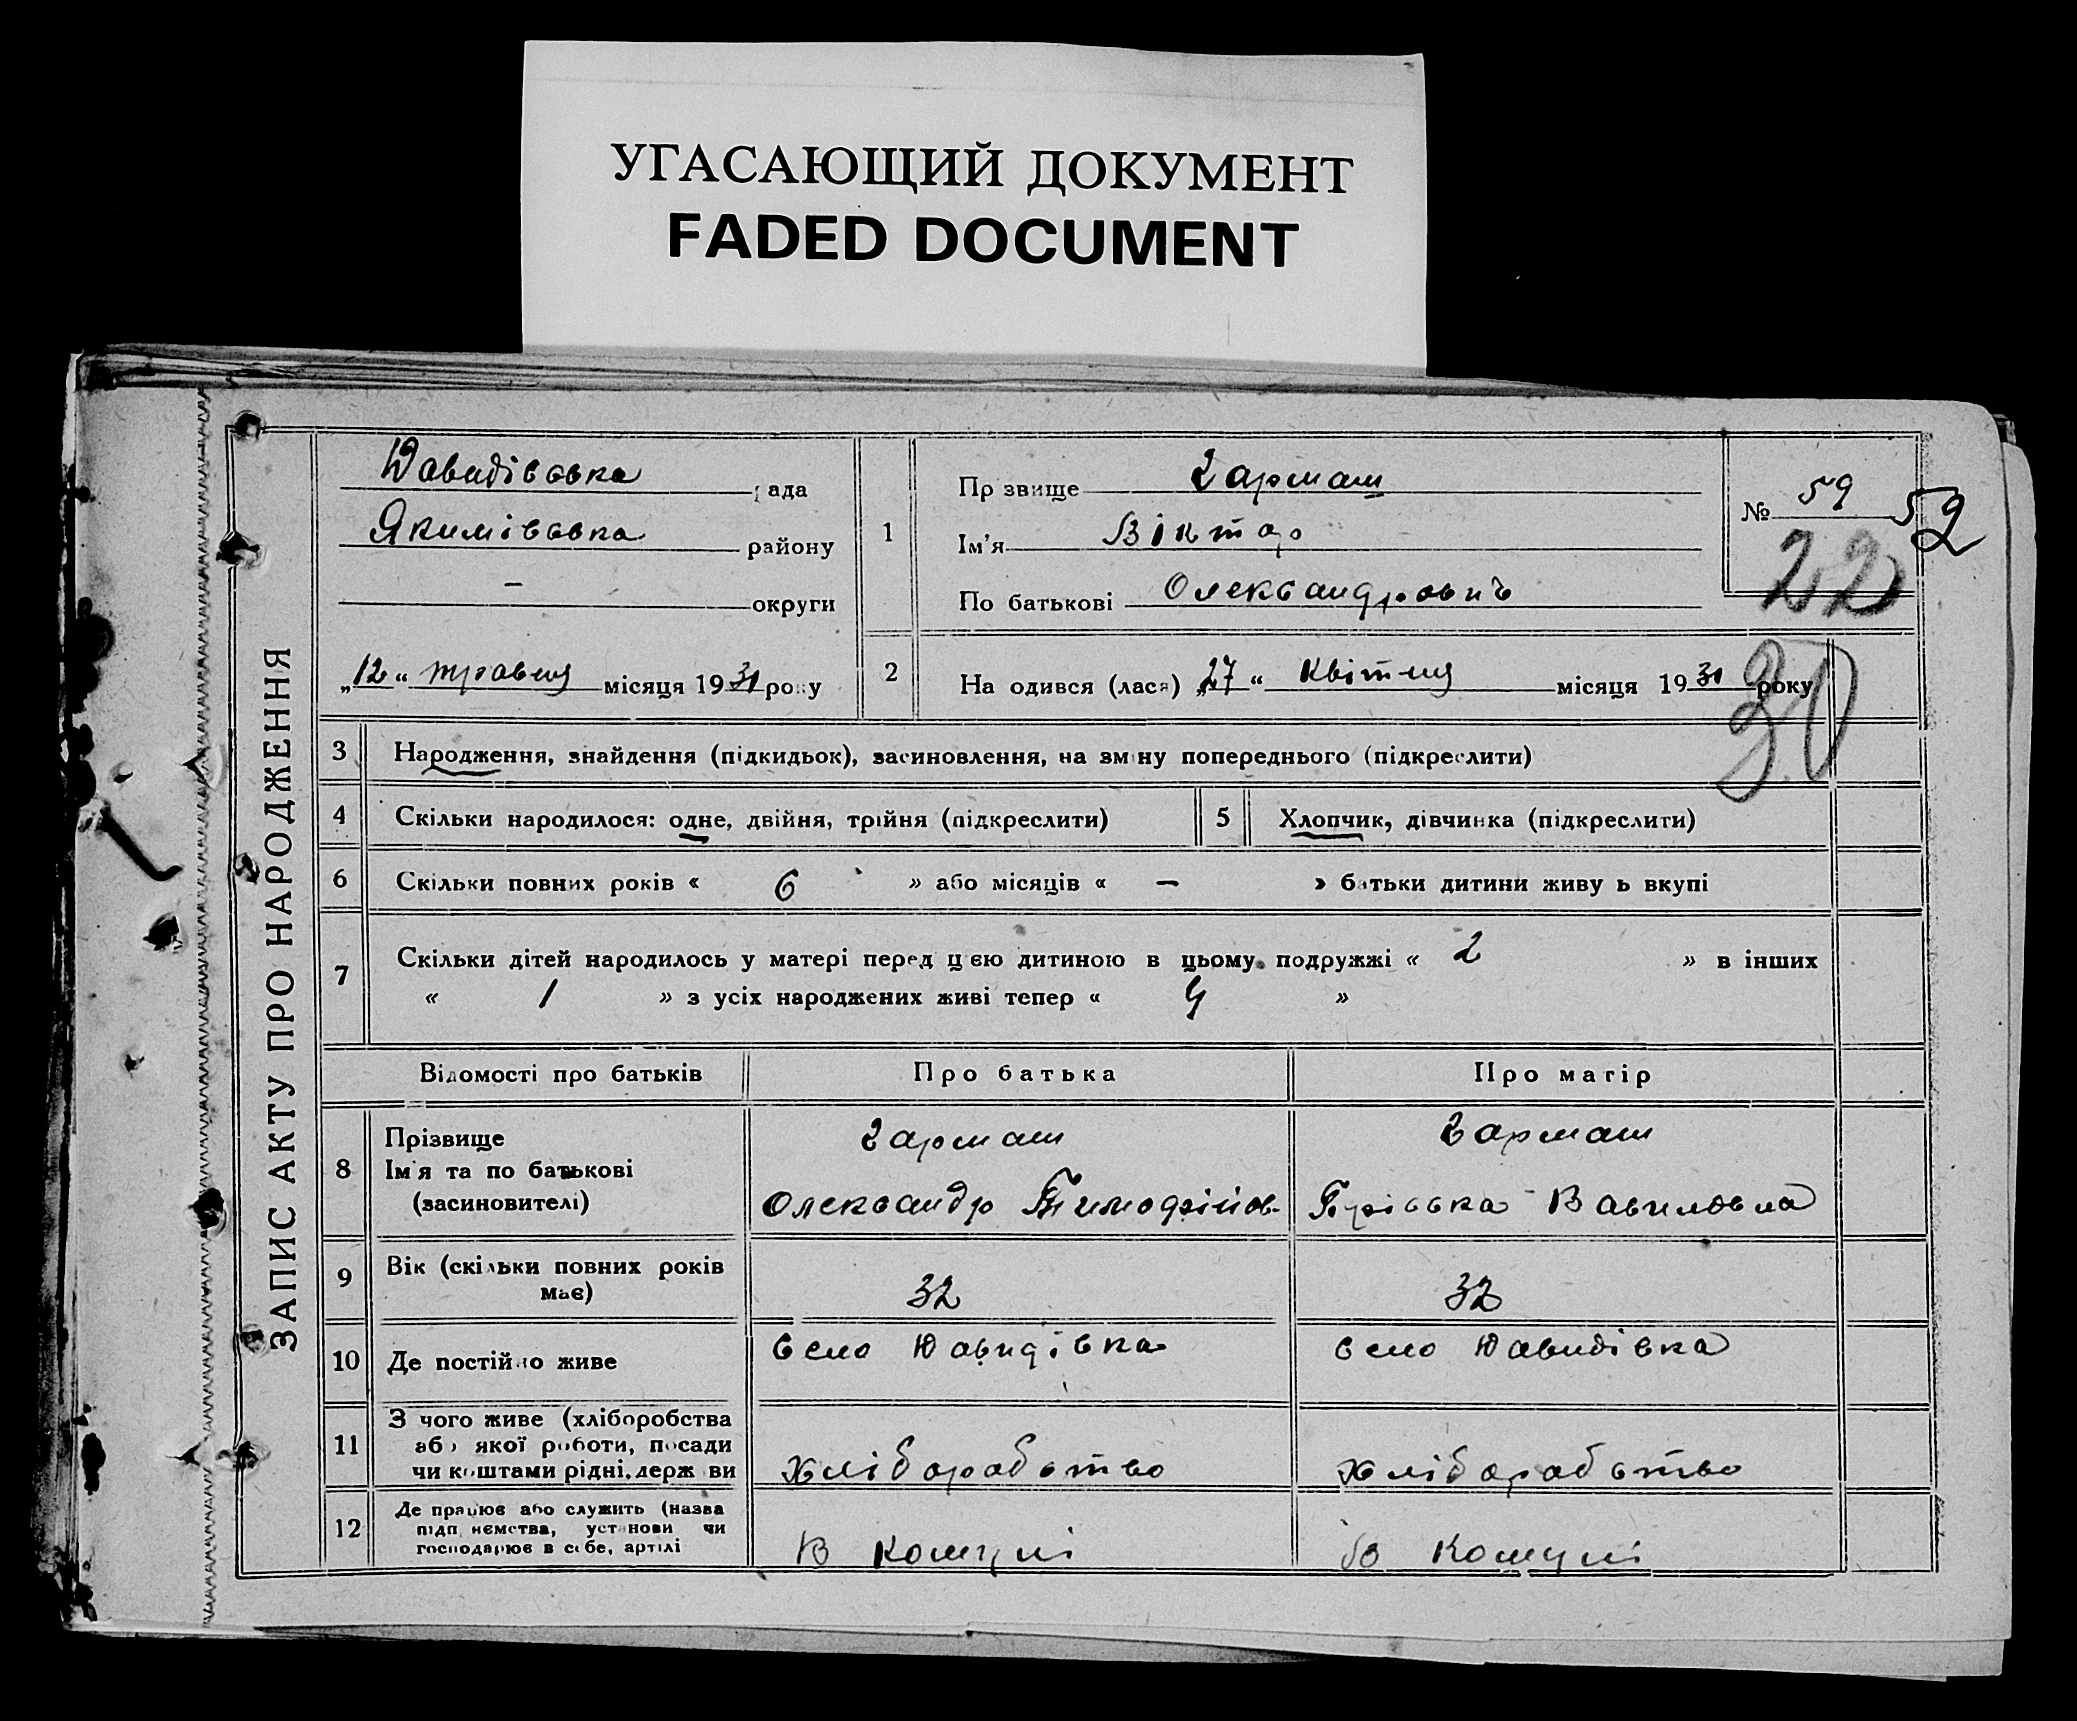 УГАСАЮЩИЙ ДОКУМЕНТ
FADED DOCUMENT
ЗАПИС АКТУ ПРО НАРОДЖЕННЯ
Давидівська рада
Якимівська району
– округи
„12“ травня місяця 1931 року
1
Прізвище Гармаш
Ім'я Віктор
По батькові Олександрович
№ 59
52
22
30
2 На одився (лася) „27“ Квітня місяця 1931 року
3 Народження, знайдення (підкидьок), засиновлення, на зміну попереднього (підкреслити)
4 Скільки народилося: одне, двійня, трійня (підкреслити)
5 Хлопчик, дівчинка (підкреслити)
6 Скільки повних років « 6 » або місяців « – » батьки дитини живуть вкупі
7 Скільки дітей народилось у матері перед цією дитиною в цьому подружжі « 2 » в інших
« 1 » з усіх народжених живі тепер « 4 »
Відомості про батьків Про батька Про матір
8 Прізвище Гармаш Гармаш
Ім'я та по батькові
(засиновителі) Олександр Тимофійов. Вавиловна
9 Вік (скільки повних років
має) 32 32
10 Де постійно живе село Давидівка село Давидівка
11 З чого живе (хліборобства
або якої роботи, посади
чи коштами рідні, держави хліборобство хліборобство
12 Де працює або служить (назва
підприємства, установи чи
господарює в себе, артілі В комуні В комуні